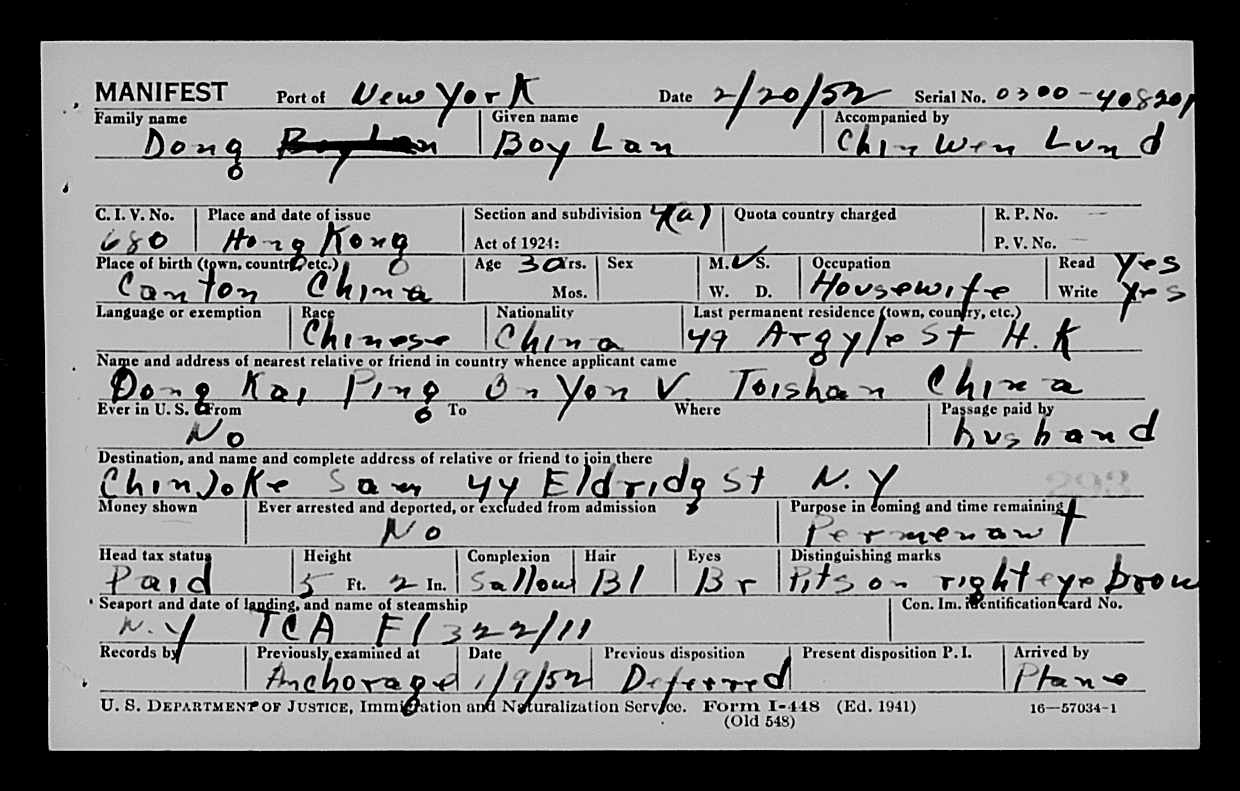 MANIFEST Port of New York Date 2/20/52 Serial No. 0300-408201
Family name Given name Accompanied by
Dong Boy Lan Boy Lan Chin Wen Lund
C. I. V. No. Place and date of issue Section and subdivision 4(a) Quota country charged R. P. No. —
680 Hong Kong Act of 1924: P. V. No. —
Place of birth (town, country, etc.) Age 30 Yrs. Sex M. ✓ S. Occupation Read Yes
Canton China Mos. W. D. Housewife Write Yes
Language or exemption Race Nationality Last permanent residence (town, country, etc.)
Chinese China 49 Argyle St H.K
Name and address of nearest relative or friend in country whence applicant came
Dong Kai Ping On Yon V Toishan China
Ever in U. S. From To Where Passage paid by
No husband
Destination, and name and complete address of relative or friend to join there
Chin Joke Sam 44 Eldridg St N.Y
293
Money shown Ever arrested and deported, or excluded from admission Purpose in coming and time remaining
— No Permenant
Head tax status Height Complexion Hair Eyes Distinguishing marks
Paid 5 Ft. 2 In. Sallow Bl Br Pits on right eye brow
Seaport and date of landing, and name of steamship Con. Im. identification card No.
N.Y TCA Fl 322/11
Records by Previously examined at Date Previous disposition Present disposition P. I. Arrived by
Anchorage 1/9/52 Deferred Plane
U. S. DEPARTMENT OF JUSTICE, Immigration and Naturalization Service. Form I-448 (Ed. 1941) 16—57034-1
(Old 548)